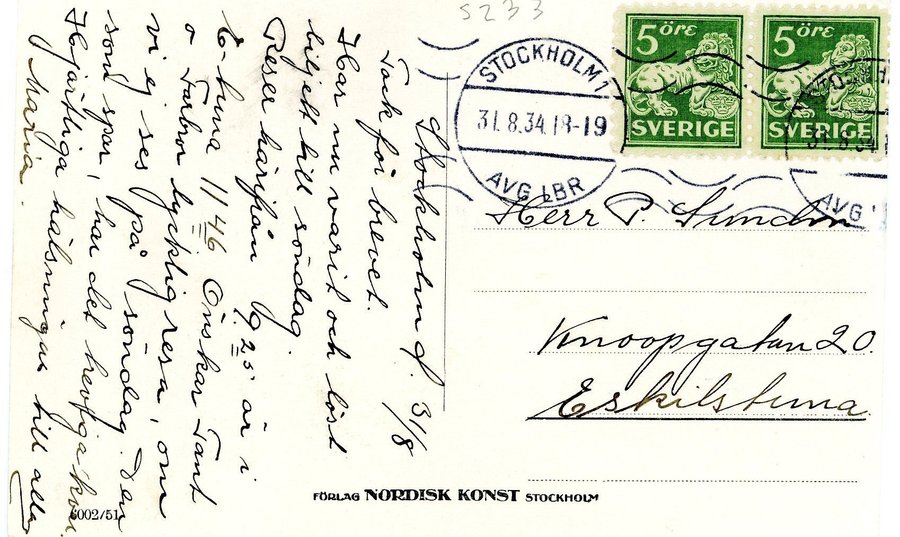 5233
5 ÖRE
SVERIGE
5 ÖRE
SVERIGE
STOCKHOLM 1
31.8.34.18-19
AVG LBR
31.8.34
AVG
Stockholm d. 31/8
Tack för brevet.
Har nu varit och löst
biljett till söndag.
Reser härifrån 9.25 är i
E-tuna 11.46 Önskar Tant
o Farbror lycklig resa, om
vi ej ses på söndag. Den
som spar, han det
Hjärtliga hälsningar till alla
Maria.
Herr P. Sundin
Knoopgatan 20.
Eskilstuna
FÖRLAG NORDISK KONST STOCKHOLM
6002/51